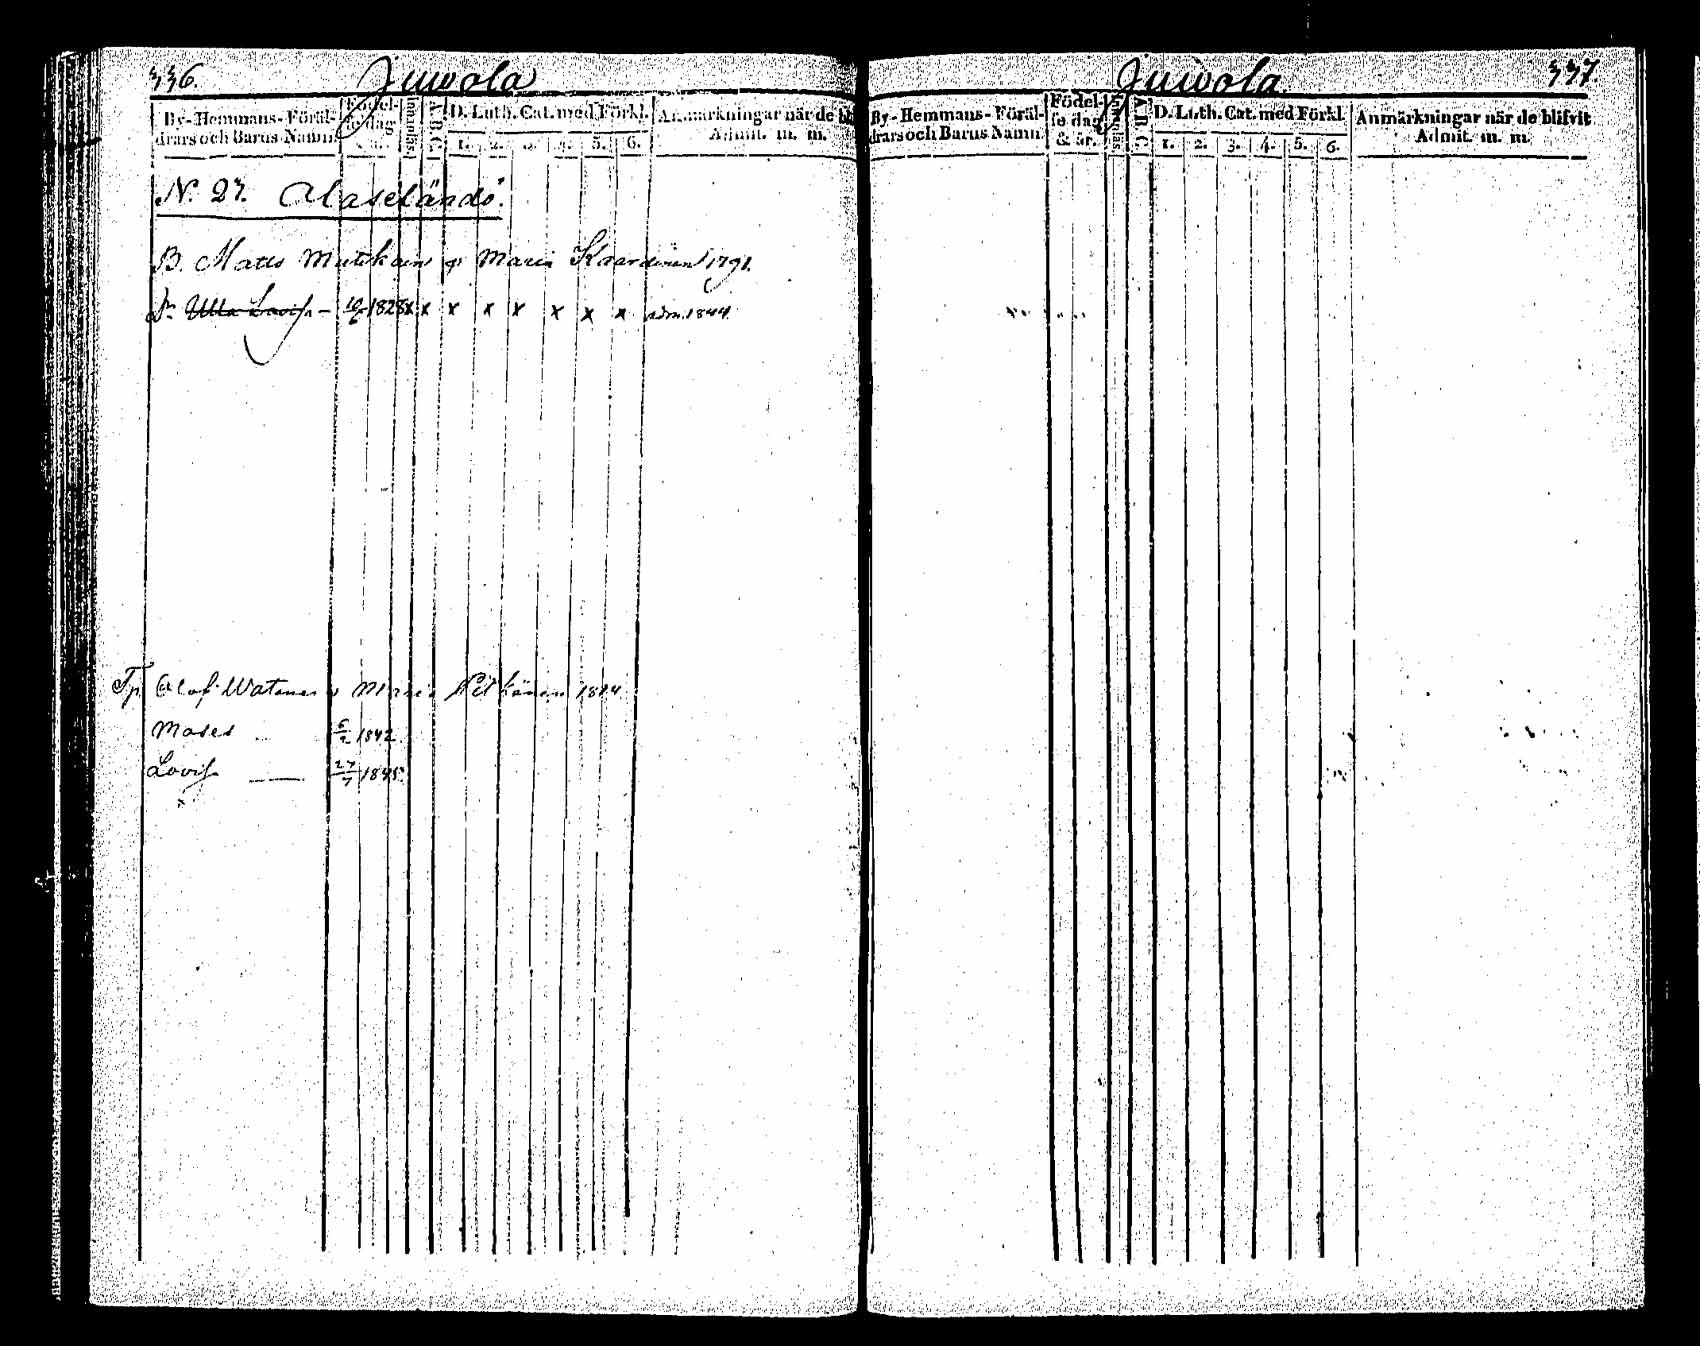 336.
Juwola
By-Hemmans-Föräl-
drars och Barns Namn.
Födel-
D. Luth. Cat. med Förkl.
Anmärkningar när de
Admit. m. m.
1. 2. 3. 4. 5. 6.
N. 27. Alaseländö.
B. Matts Mutikain Maria 1791.
Dr Ulla Lovisa – 1828 x x x x x x x x adm. 1844.
Olof Watanen Maria 1814
Moses 6/2 1842.
Lovisa — 27/7 1845.
Juwola
337.
By-Hemmans-Föräl-
drars och Barns Namn.
Födel-
se dag
& år.
A.B.C.
D. Luth. Cat. med Förkl.
1. 2. 3. 4. 5. 6.
Anmärkningar när de blifvit
Admit. m. m.